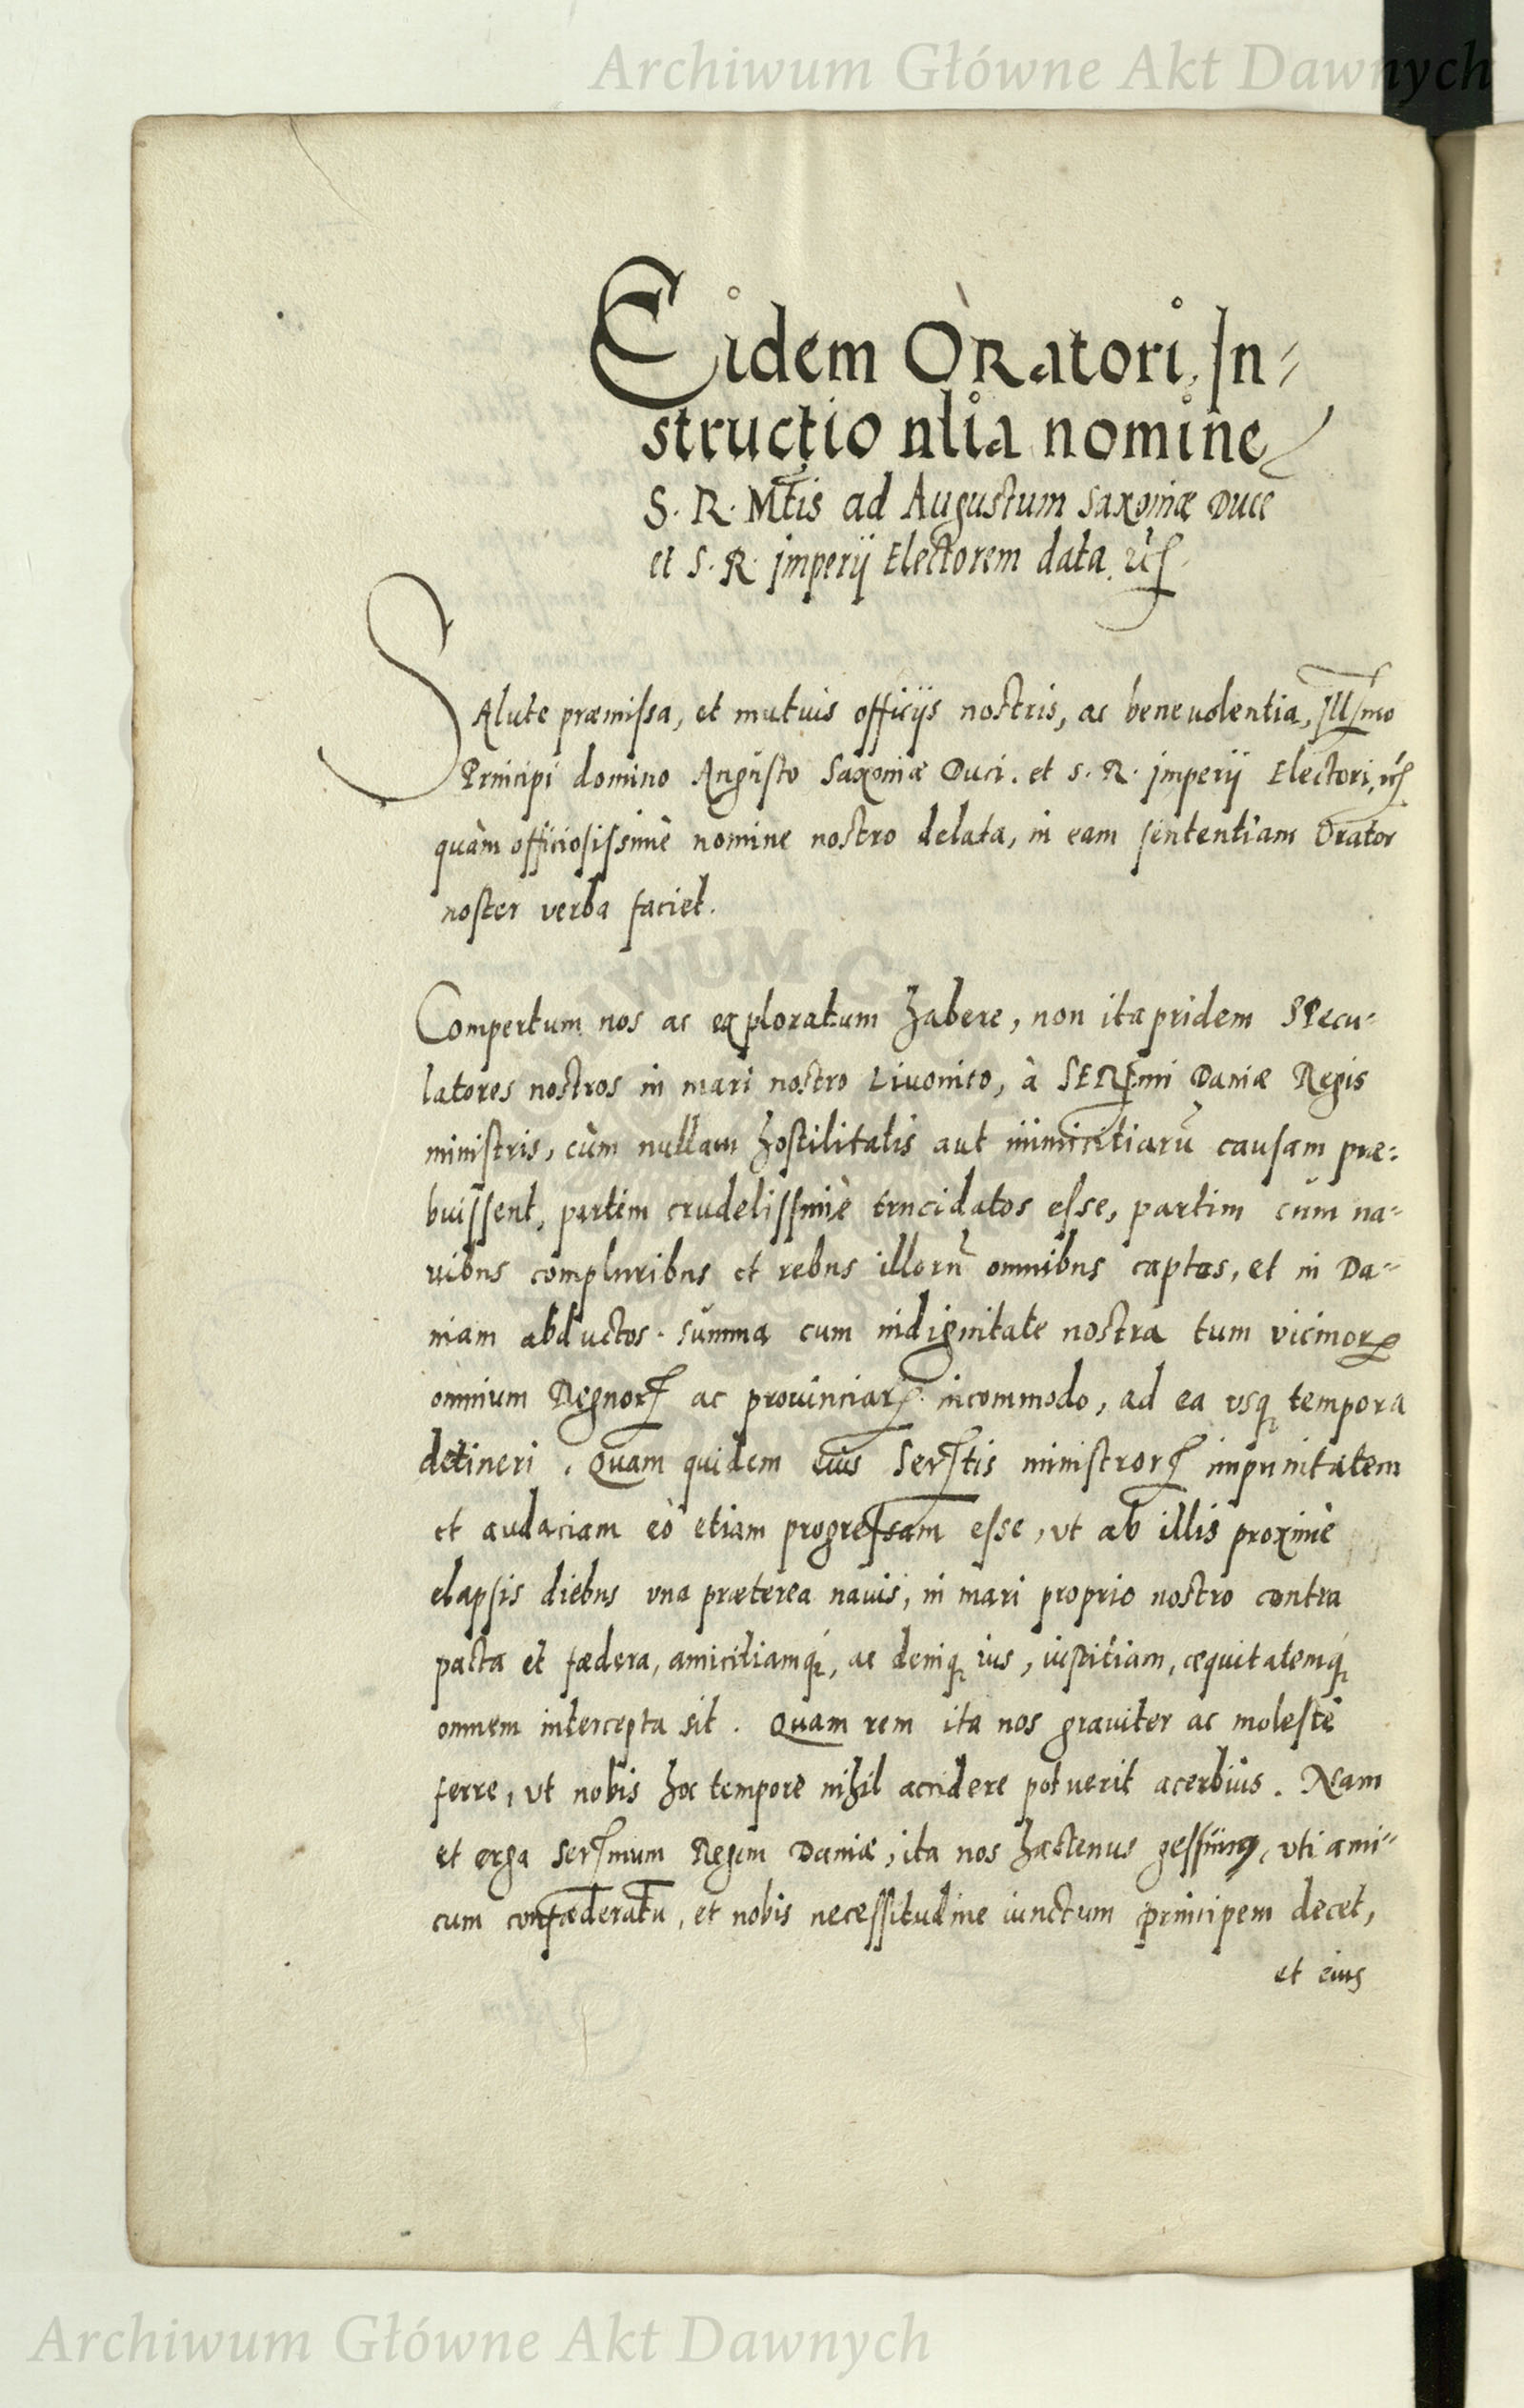 Archiwum Główne Akt Dawnych
Eidem Oratori, In-
structio alia nomine
S. R. Mtis ad Augustum Saxoniæ Duce
et S. R. Imperij Electorem data, etc.
Salute præmissa, et mutuis officijs nostris, ac beneuolentia, Illmo
Principi domino Augusto Saxoniæ Duci. et S. R. Imperij Electori, etc.
quàm officiosissimè nomine nostro delata, in eam sententiam Orator
noster verba faciet.
Compertum nos ac exploratum habere, non ita pridem Specu-
latores nostros in mari nostro Liuonico, à SERmi Daniæ Regis
ministris, cùm nullam hostilitatis aut inimicitiarũ causam præ-
buissent, partim crudelissimè trucidatos esse, partim cum na-
uibus compluribus et rebus illorũ omnibus captos, et in Da-
niam abductos. summa cum indignitate nostra tum vicinorꝝ
omnium Regnorꝝ ac prouinciarꝝ incommodo, ad ea vsqꝫ tempora
detineri. Quam quidem eius Sertis ministrorꝝ impunitatem
et audaciam eò etiam progressam esse, vt ab illis proximè
elapsis diebus vna præterea nauis, in mari proprio nostro contra
pacta et fædera, amicitiamqꝫ, ac deniqꝫ ius, iustitiam, æquitatemqꝫ
omnem intercepta sit. Quam rem ita nos grauiter ac molestè
ferre, vt nobis hoc tempore nihil accidere potuerit acerbius. Nam
et erga Sermum Regem Daniæ, ita nos hactenus gessimꝰ, vti ami-
cum confæderatũ, et nobis necessitudine iunctum principem decet,
et eius
Archiwum Główne Akt Dawnych